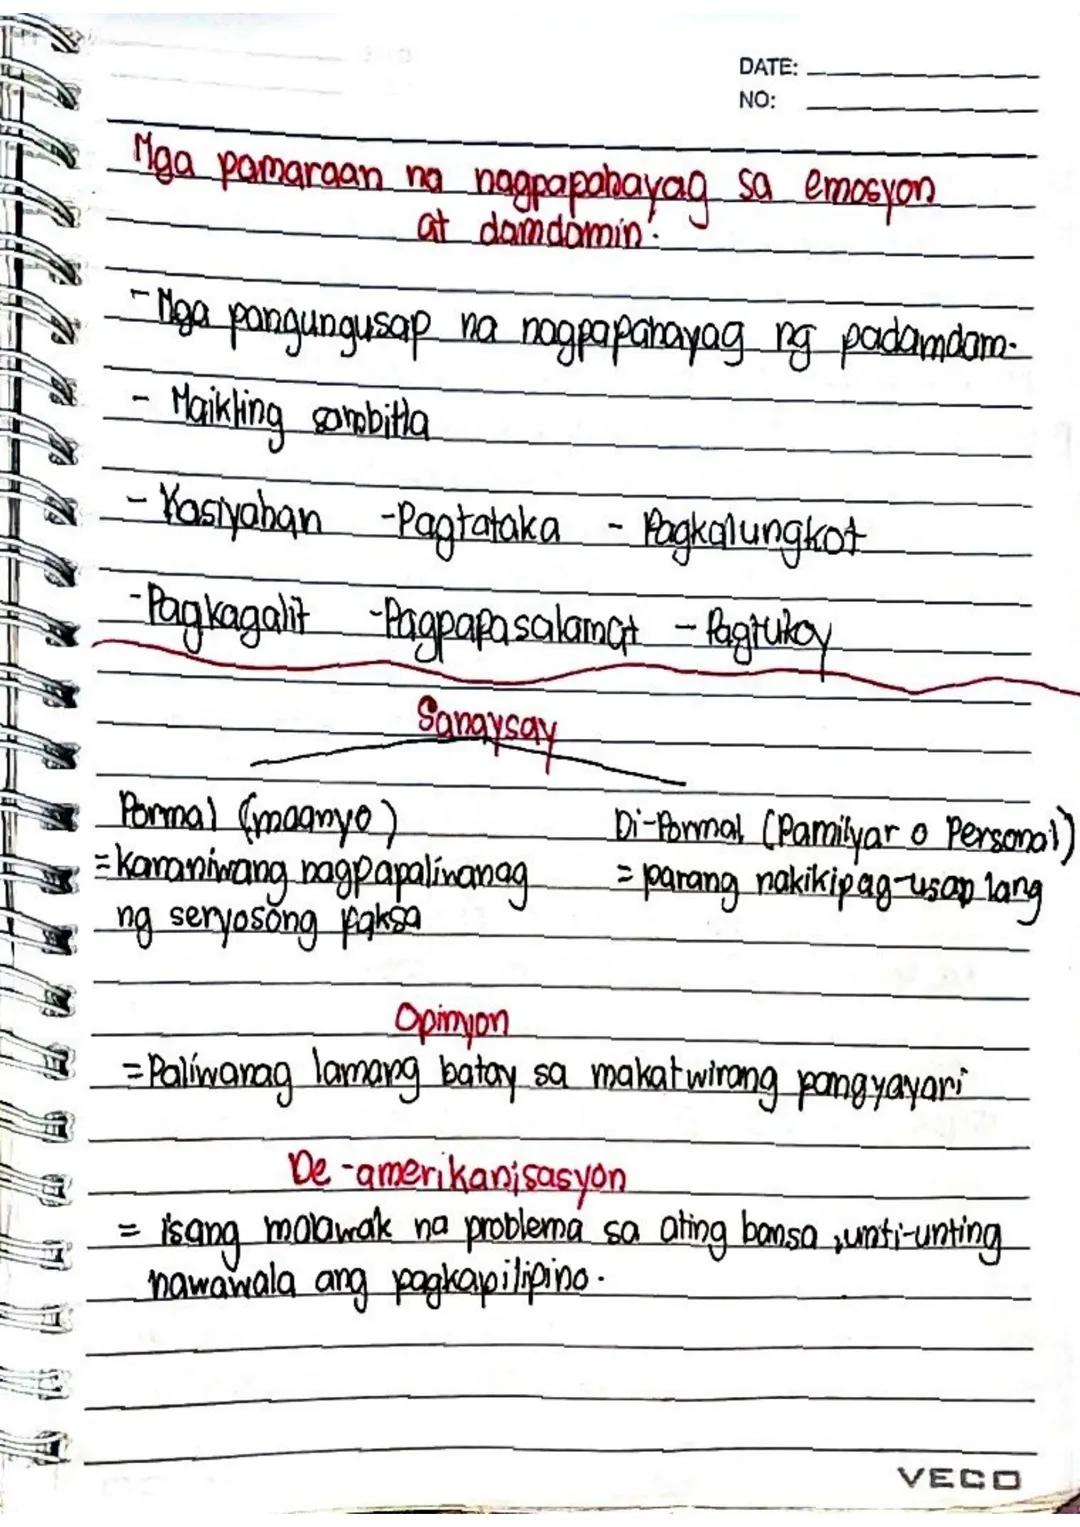 DATE:
NO:
Mga pamaraan na nagpapahayag sa emosyon
at damdamin:
- Mga pangungusap na nagpapahayag ng padamdam.
- Maikling sambitla
- Kasiyahan - Pagtataka - Pagkalungkot
- Pagkagalit - Pagpapasalamat - Pagtukoy
Sanaysay
Pormal (maanyo) Di-Pormal (Pamilyar o Personal)
= karaniwang nagpapalinanag = parang nakikipag-usap lang
ng seryosong paksa
Opinyon
= Paliwanag lamang batay sa makatwirang pangyayari
De-amerikanisasyon
= isang malawak na problema sa ating bansa, unti-unting
nawawala ang pagkapilipino.
VECO